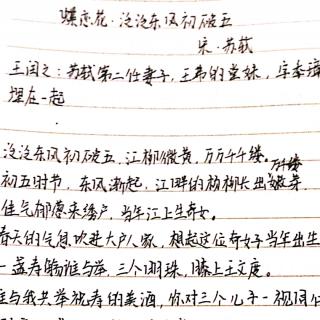 蝶恋花·泛泛东风初破五
宋·苏轼
王闰之：苏轼第二任妻子，王弗的堂妹，与苏轼
埋在一起
泛泛东风初破五，江柳微黄，万万千千缕。
初五时节，东风渐起，江畔的杨柳长出嫩芽，万千缕
佳气郁葱来绣户，当年江上生奇女。
春天的气息吹进大户人家，想起这位奇女子当年出生
一盏寿觞谁与举，三个明珠，膝上王文度。
谁与我共举祝寿的美酒，你对三个儿子一视同仁